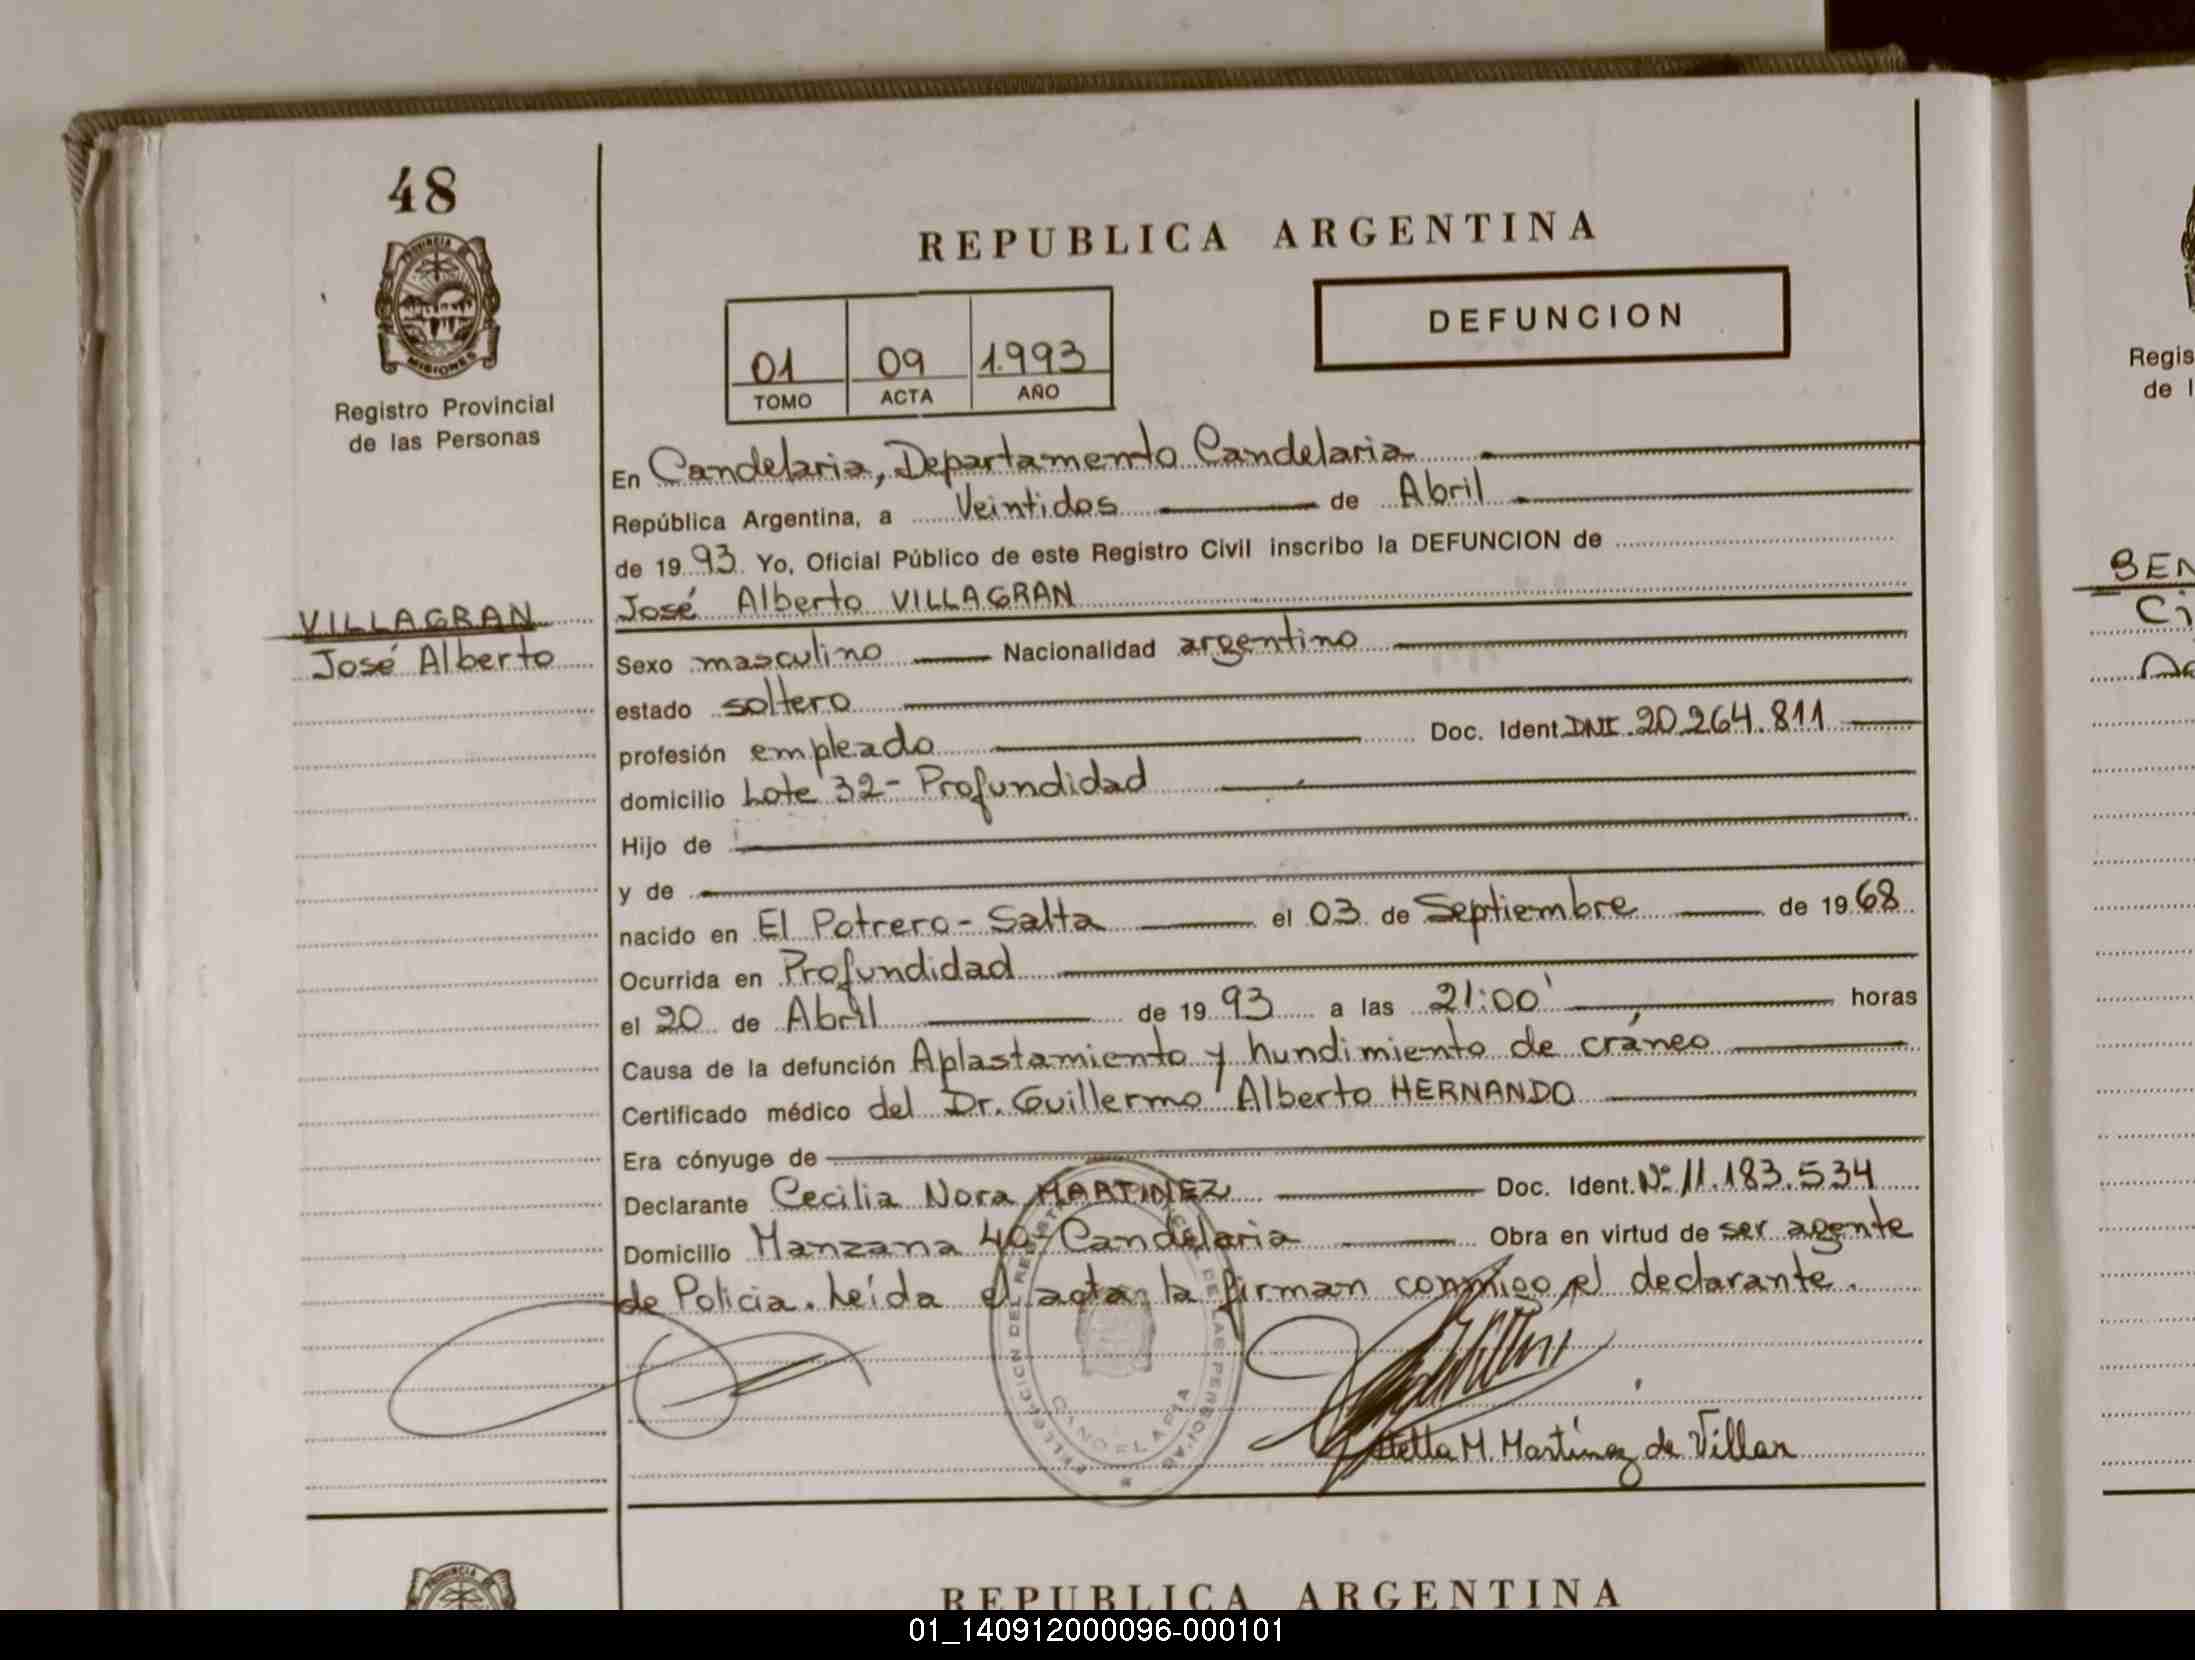 48
PROVINCIA DE
MISIONES
Registro Provincial
de las Personas
VILLAGRAN
José Alberto
REPUBLICA ARGENTINA
DEFUNCION
01 09 1.993
TOMO ACTA AÑO
En Candelaria, Departamento Candelaria
República Argentina, a Veintidos de Abril
de 1993. Yo, Oficial Público de este Registro Civil inscribo la DEFUNCION de
José Alberto VILLAGRAN
Sexo masculino Nacionalidad argentino
estado soltero
profesión empleado Doc. Ident. DNI. 20.264.811
domicilio Lote 32 - Profundidad
Hijo de
y de
nacido en El Potrero - Salta el 03 de Septiembre de 1968
Ocurrida en Profundidad
el 20 de Abril de 1993 a las 21:00' horas
Causa de la defunción Aplastamiento y hundimiento de cráneo
Certificado médico del Dr. Guillermo Alberto HERNANDO
Era cónyuge de
Declarante Cecilia Nora MARTINEZ Doc. Ident. Nº 11.183.534
Domicilio Manzana 40 - Candelaria Obra en virtud de ser agente
de Policia. Leída el acta la firman conmigo el declarante.
CANDELARIA
Stella M. Martínez de Villar
REPUBLICA ARGENTINA
PROVINCIA DE
Regis
de l
BEN
Ci
01_140912000096-000101